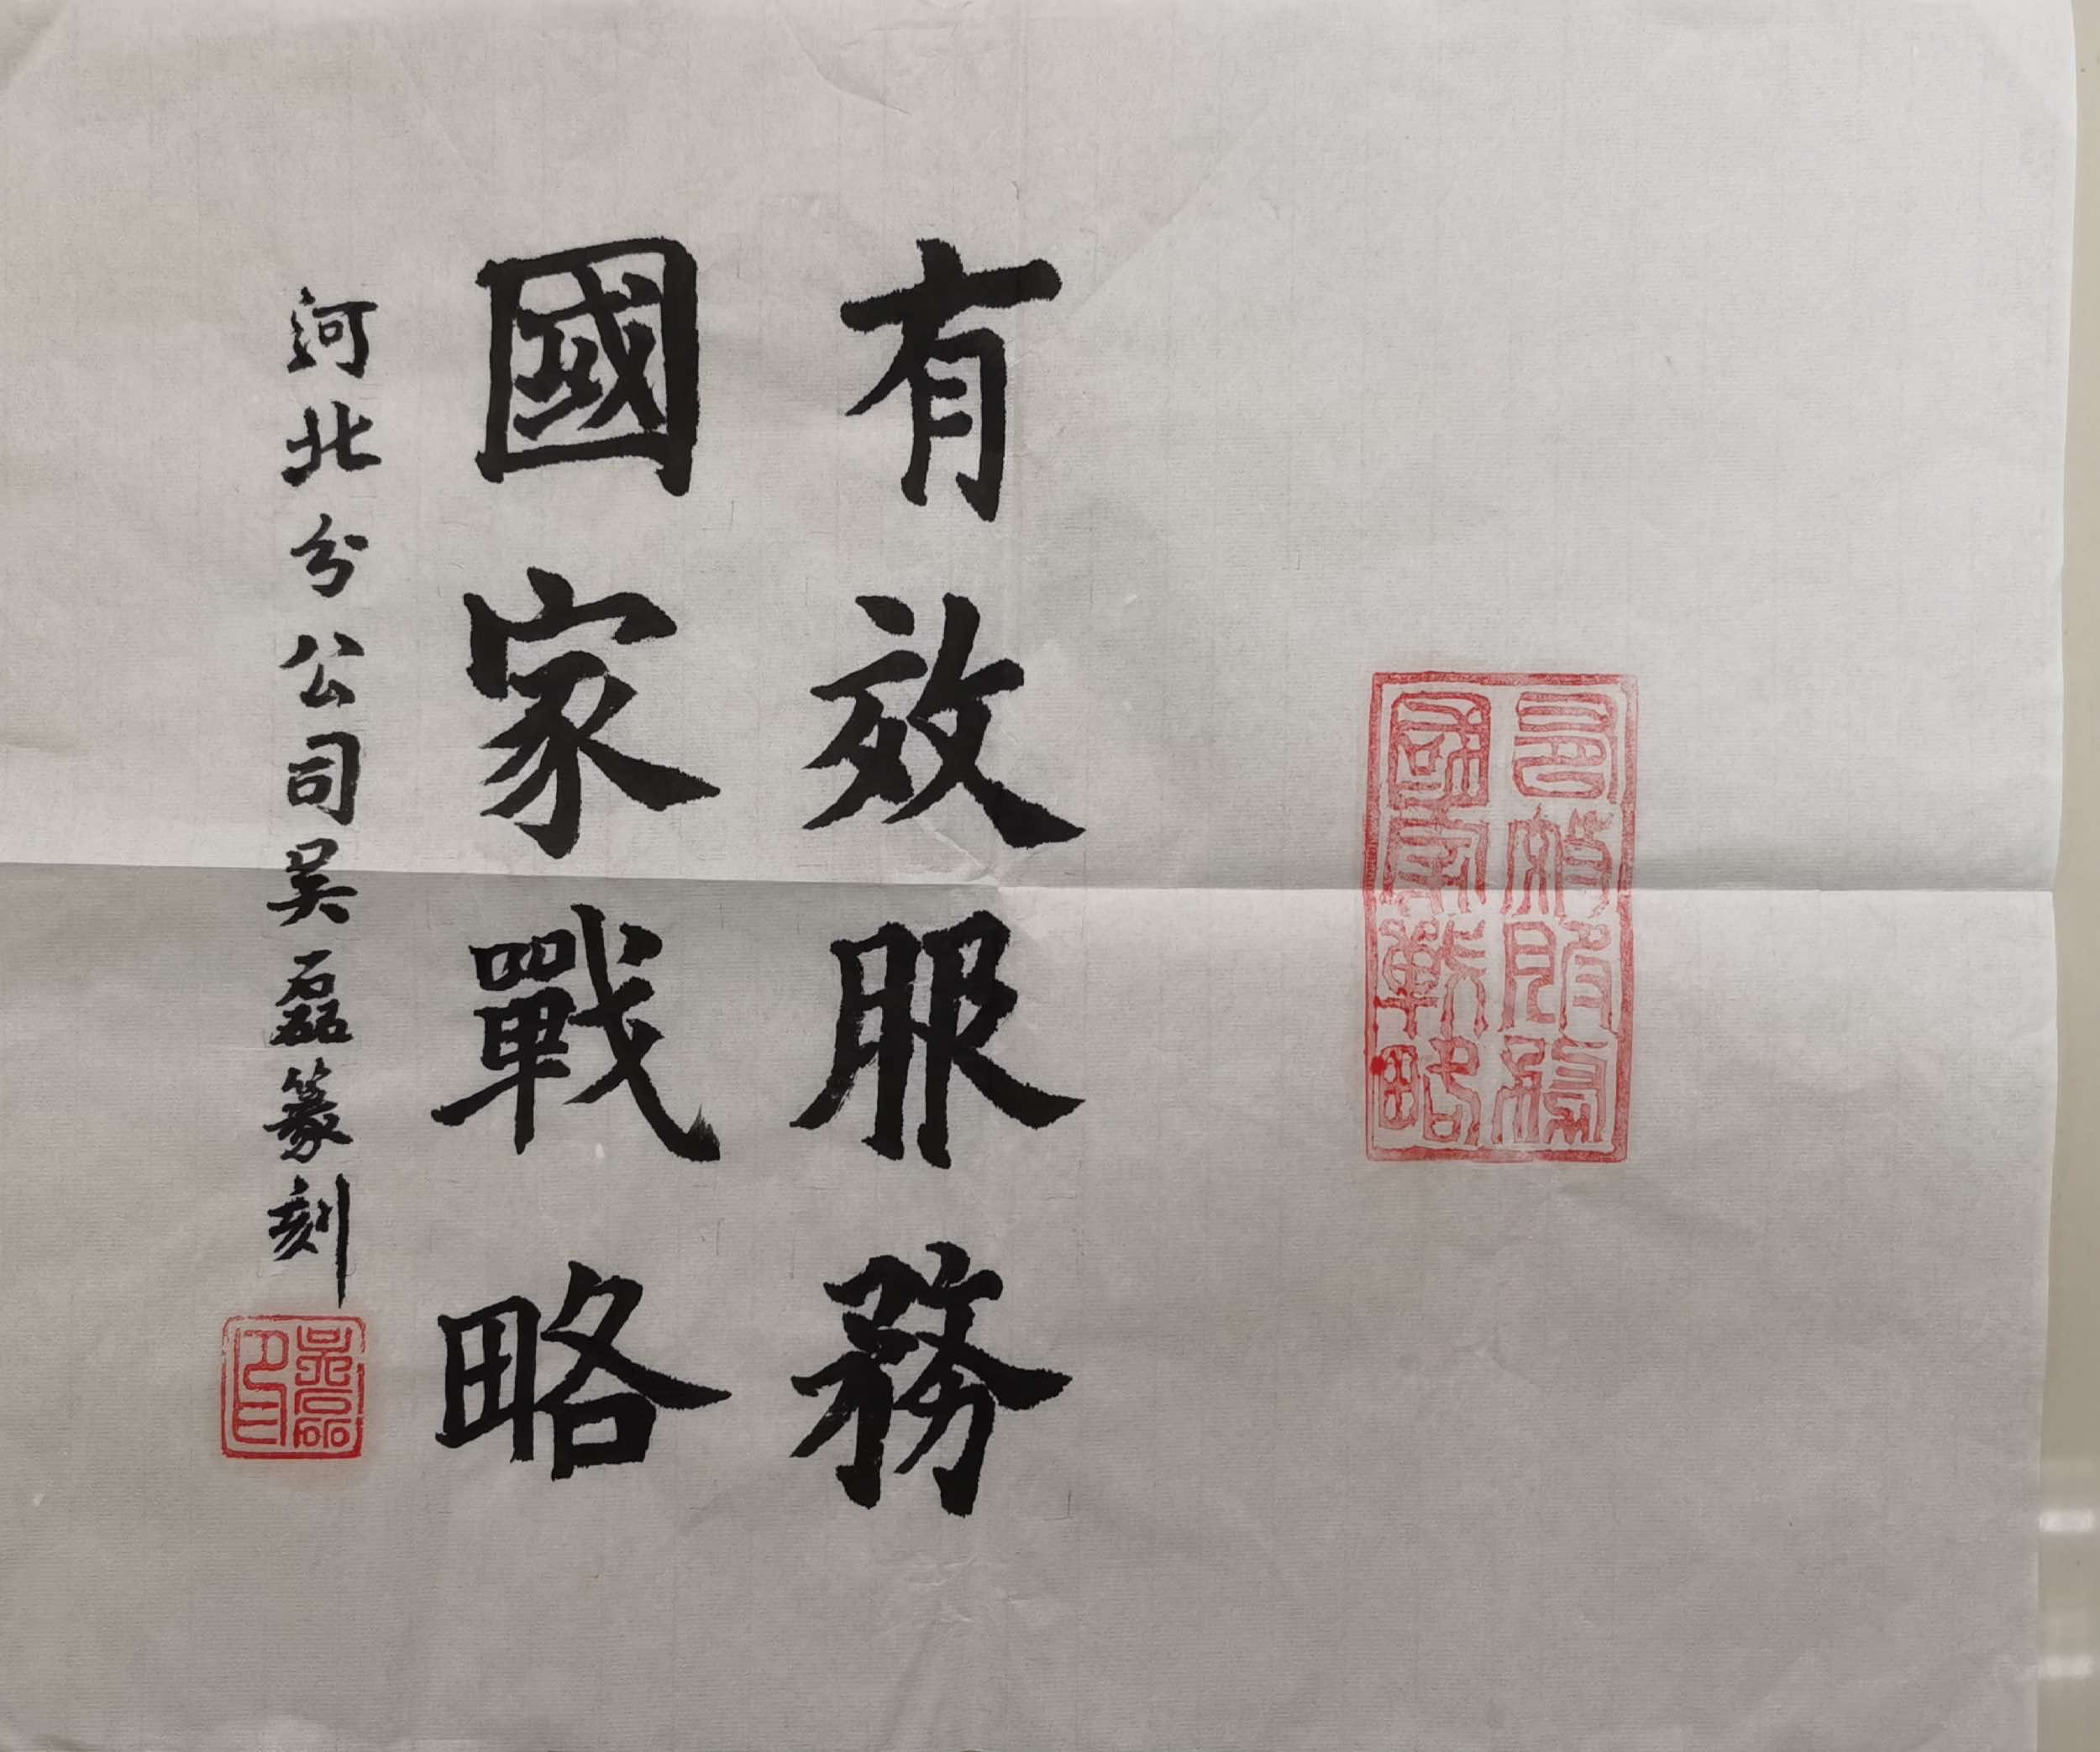 有效服務
國家戰略
有效服務
國家戰略
河北分公司吴磊篆刻
吴磊印